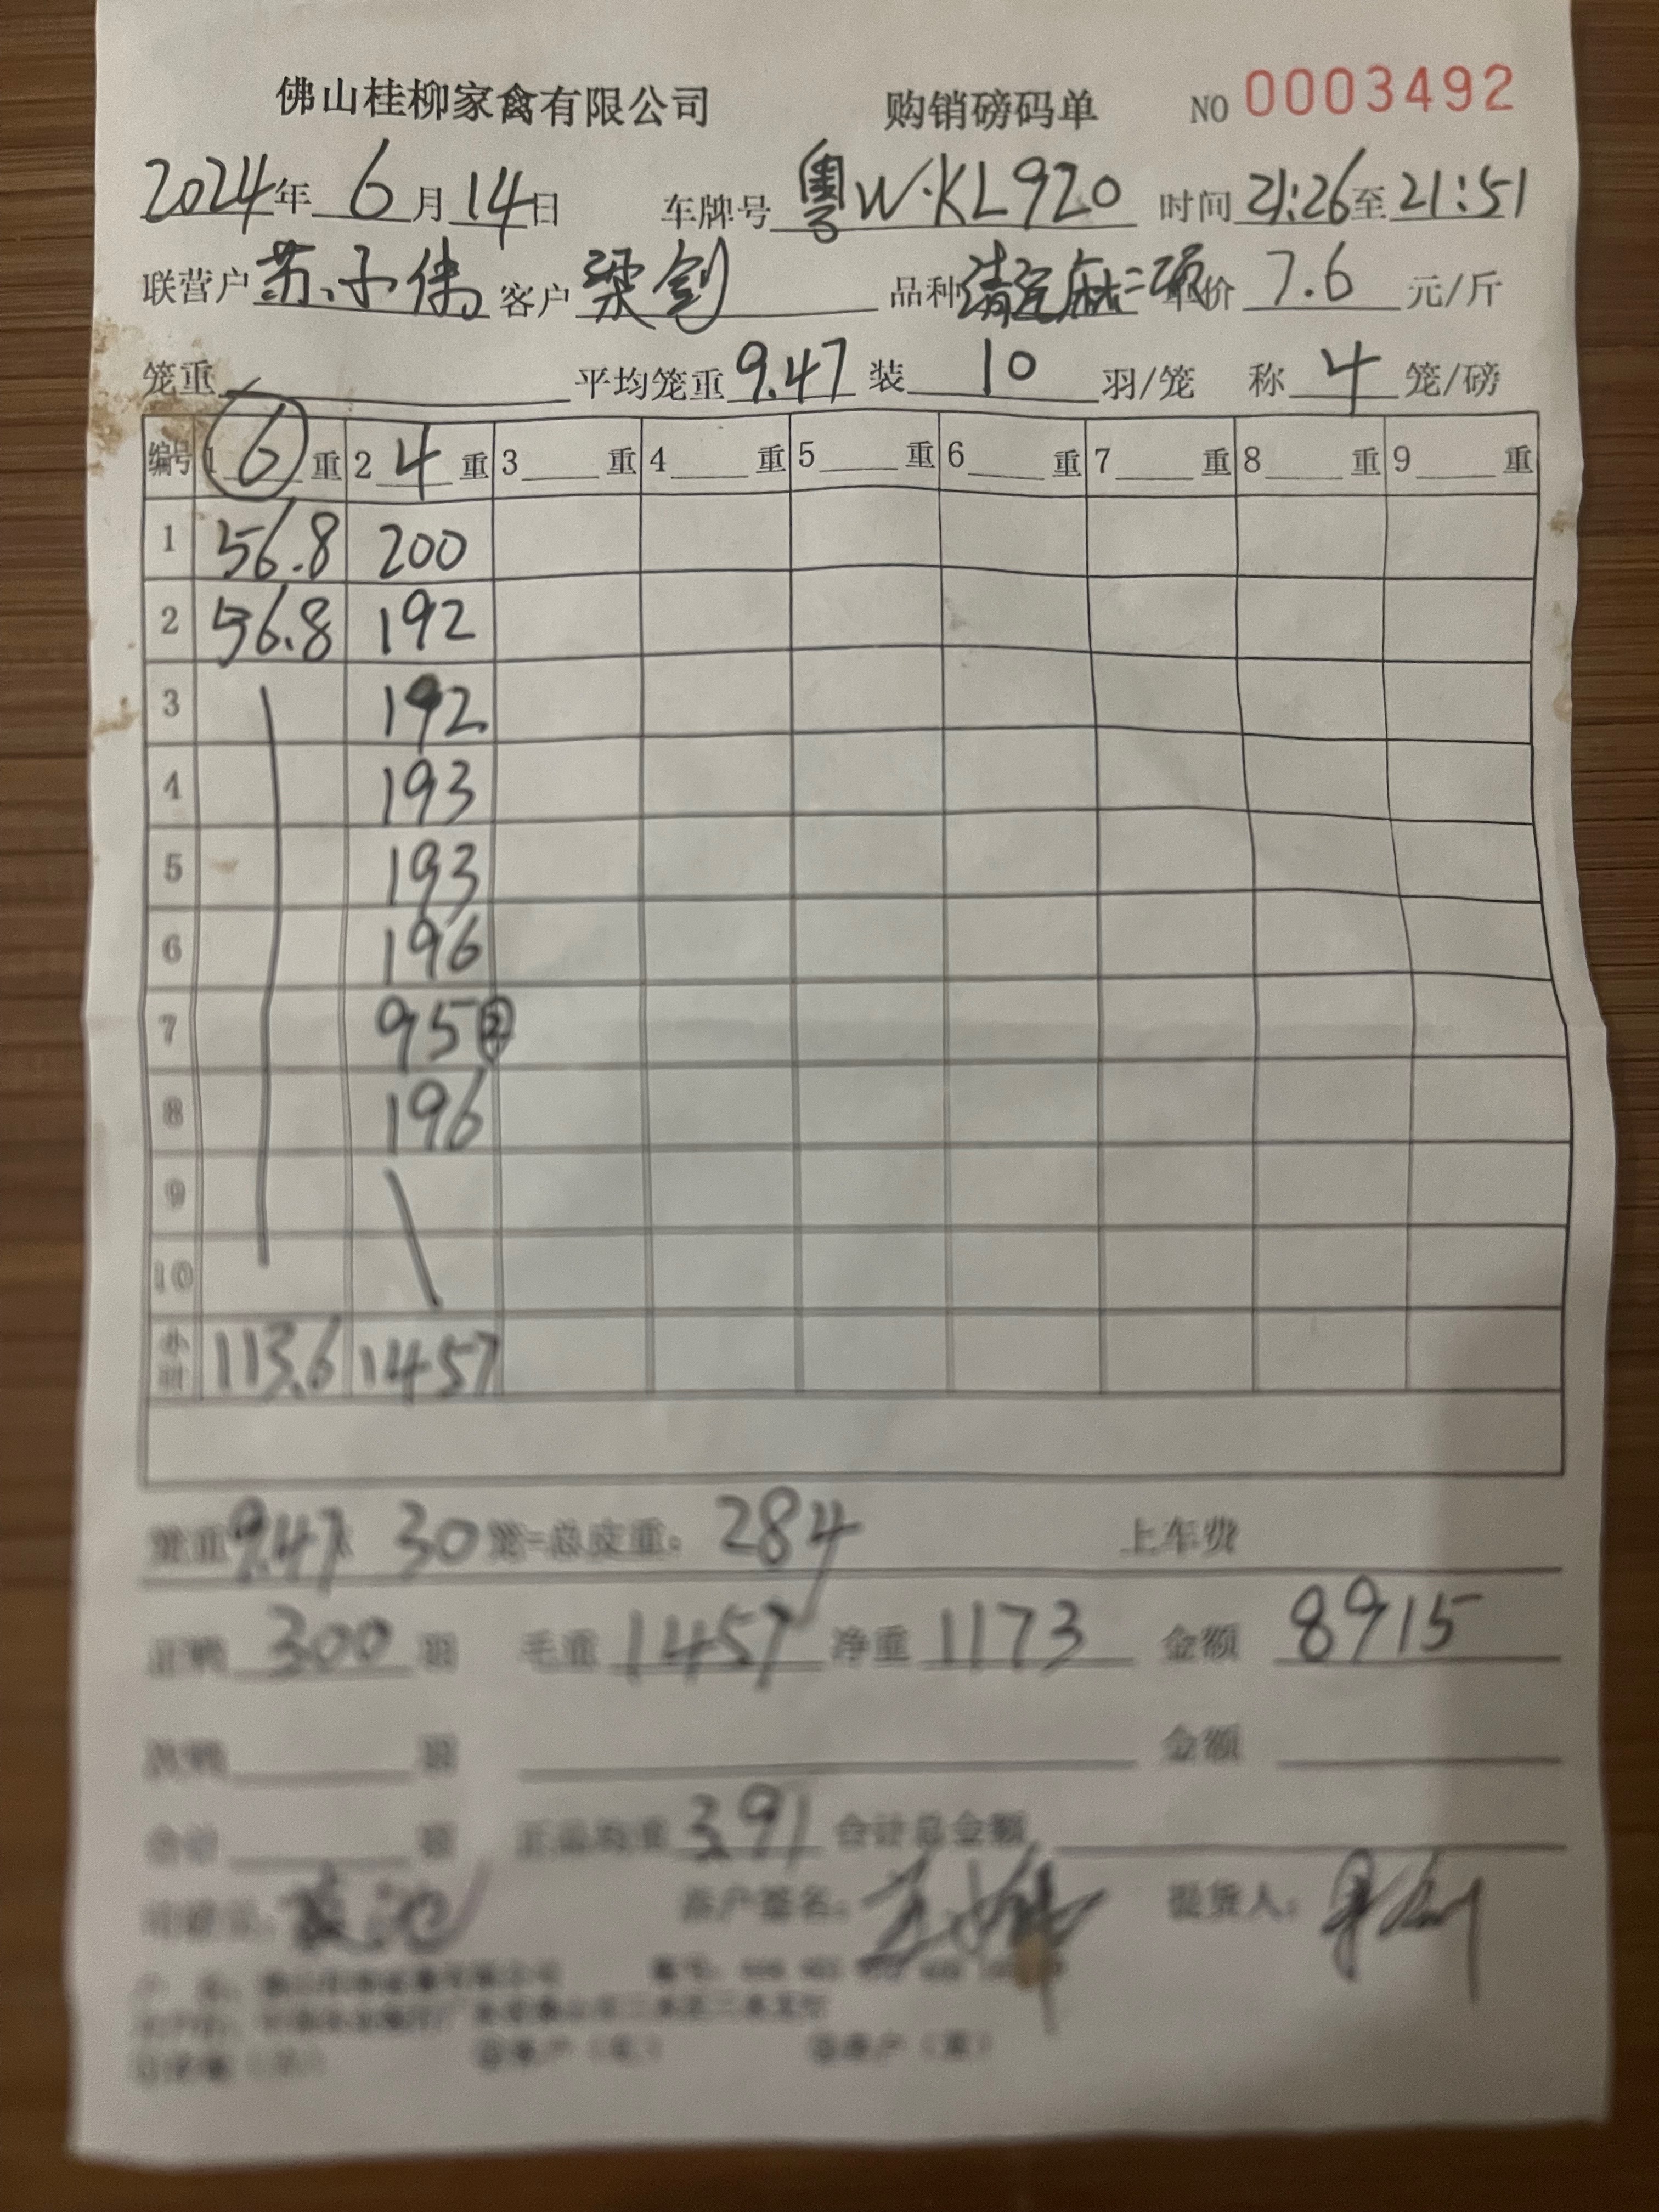 佛山桂柳家禽有限公司 购销磅码单 NO 0003492
2024年 6月14日 车牌号 粤W·KL920 时间 21:26至21:51
联营户 苏子伟 客户 梁剑 品种 清远麻二项 单价 7.6 元/斤
笼重 平均笼重 9.47 装 10 羽/笼 称 4 笼/磅
编号 1 6 重 2 4 重 3 重 4 重 5 重 6 重 7 重 8 重 9 重
1 56.8 200
2 56.8 192
3 192
4 193
5 193
6 196
7 95 ②
8 196
9
10
小计 113.6 1457
笼重 9.47 x 30 笼=总皮重: 284 上车费
正鸡 300 羽 毛重 1457 净重 1173 金额 8915
次鸡 羽 金额
合计 羽 正品均重 3.91 合计总金额
客户签名: 提货人: